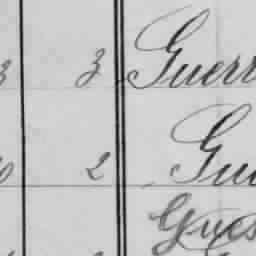 3 3 Guerr
0 2 Gu
Gues